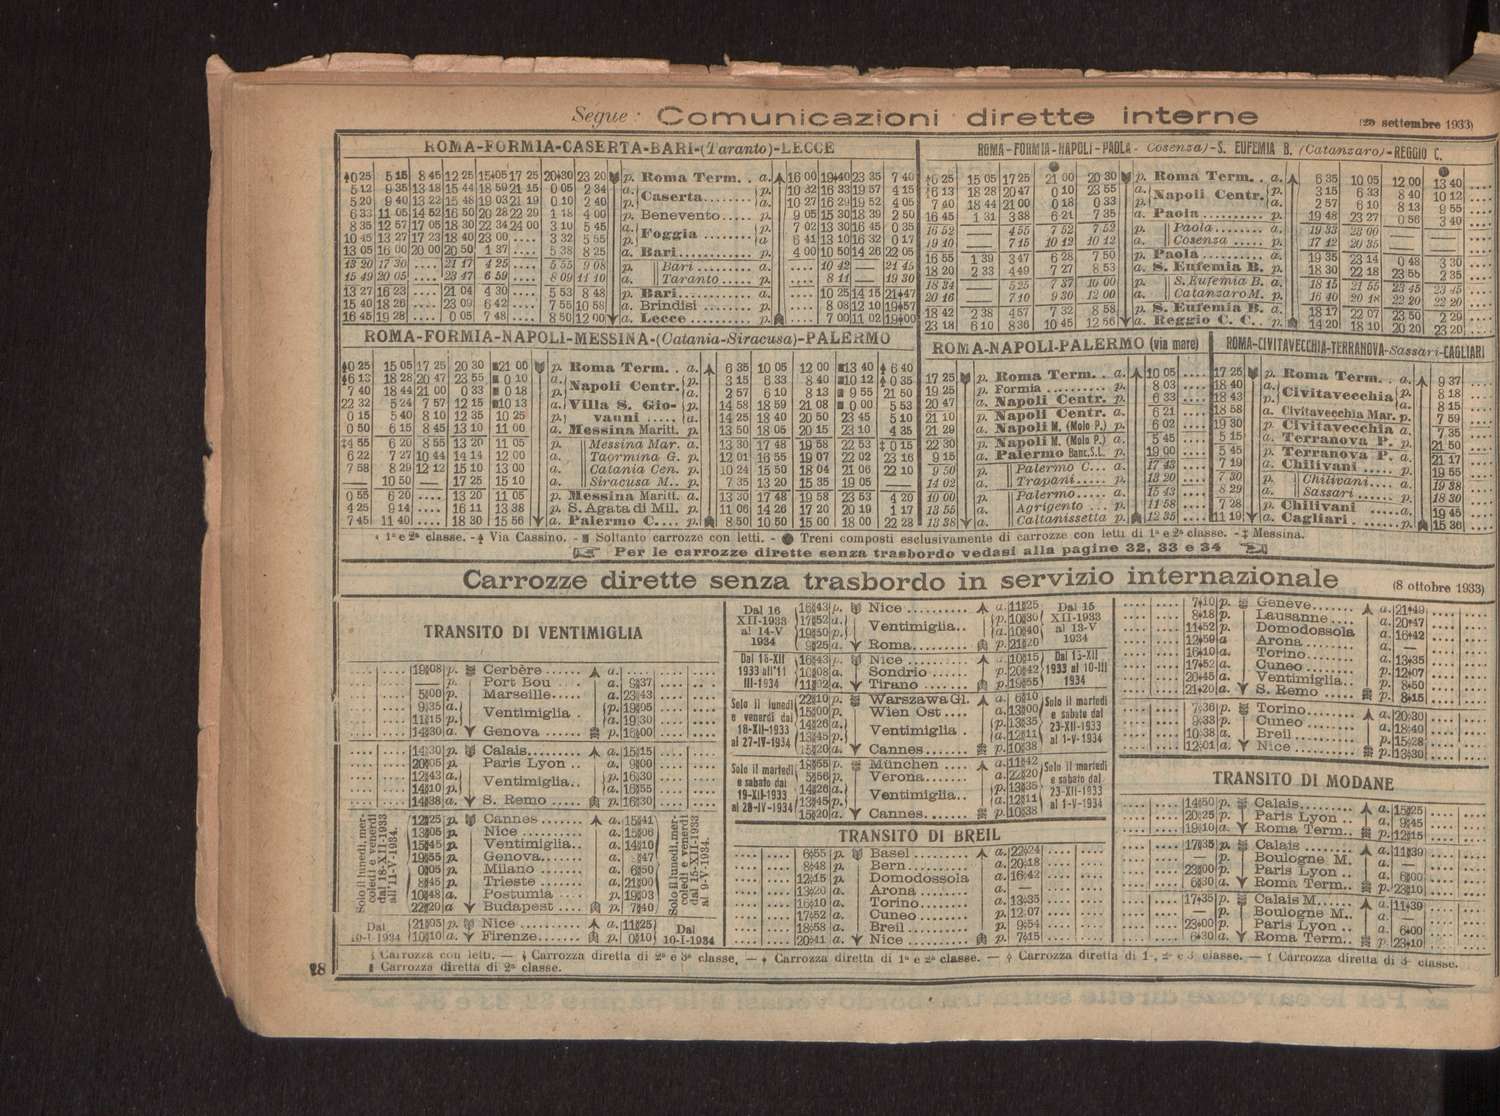 Segue: Comunicazioni dirette interne
(20 settembre 1933)
ROMA-FORMIA-CASERTA-BARI-(Taranto)-LECCE
0 25 5 15 8 45 12 25 15 05 17 25 20 30 23 20 p. Roma Term. . a. 16 00 19 40 23 35 7 40
5 12 9 35 13 18 15 44 18 59 21 15 0 05 2 34 a. Caserta p. 10 32 16 33 19 57 4 15
5 20 9 40 13 22 15 48 19 03 21 19 0 10 2 40 p. a. 10 27 16 29 19 52 4 05
6 33 11 05 14 52 16 50 20 28 22 29 1 18 4 00 p. Benevento p. 9 05 15 30 18 39 2 50
8 35 12 57 17 05 18 30 22 34 24 00 3 10 5 45 a. Foggia p. 7 02 13 30 16 45 0 35
10 45 13 27 17 23 18 40 23 00 .... 3 32 5 55 p. a. 6 41 13 10 16 32 0 17
13 05 16 00 20 00 20 50 1 37 .... 5 38 8 25 a. Bari p. 4 00 10 50 14 26 22 05
13 20 17 30 .... 21 17 4 25 .... 5 55 9 08 p. Bari a. .... 10 42 — 21 45
15 49 20 05 .... 23 47 6 59 .... 8 09 11 10 a. Taranto p. .... 8 11 — 19 30
13 27 16 23 .... 21 04 4 30 .... 5 53 8 48 p. Bari a. .... 10 25 14 15 21 47
15 40 18 26 .... 23 09 6 42 .... 7 55 10 58 a. Brindisi p. .... 8 08 12 10 19 57
16 45 19 28 .... 0 05 7 48 .... 8 50 12 00 a. Lecce p. .... 7 00 11 02 19 00
ROMA-FORMIA-NAPOLI-PAOLA-(Cosenza)-S. EUFEMIA B. (Catanzaro)-REGGIO C.
6 25 15 05 17 25 21 00 20 30 p. Roma Term. . a. 6 35 10 05 12 00 13 40
6 13 18 28 20 47 0 10 23 55 a. Napoli Centr. p. 3 15 6 33 8 40 10 12
7 40 18 44 21 00 0 18 0 33 p. a. 2 57 6 10 8 13 9 55
16 45 1 31 3 38 6 21 7 35 a. Paola p. 19 48 23 27 0 56 3 40
16 52 — 4 55 7 52 7 52 p. Paola a. 19 33 23 00 — —
19 10 — 7 15 10 12 10 12 a. Cosenza p. 17 12 20 35 — —
16 55 1 39 3 47 6 28 7 50 p. Paola a. 19 35 23 14 0 48 3 30
18 20 2 33 4 49 7 27 8 53 a. S. Eufemia B. p. 18 30 22 18 23 55 2 35
18 34 — 5 25 7 37 10 00 p. S. Eufemia B. a. 18 15 21 55 23 45 23 45
20 16 — 7 10 9 30 12 00 a. Catanzaro M. p. 16 40 20 18 22 20 22 20
18 42 2 38 4 57 7 32 8 58 p. S. Eufemia B. a. 18 17 22 07 23 50 2 29
23 18 6 10 8 36 10 45 12 56 a. Reggio C. C. . p. 14 20 18 10 20 20 23 20
ROMA-FORMIA-NAPOLI-MESSINA-(Catania-Siracusa)-PALERMO
0 25 15 05 17 25 20 30 21 00 p. Roma Term. . a. 6 35 10 05 12 00 13 40 6 40
6 13 18 28 20 47 23 55 0 10 a. Napoli Centr. p. 3 15 6 33 8 40 10 12 0 35
7 40 18 44 21 00 0 33 0 18 p. a. 2 57 6 10 8 13 9 55 21 50
22 32 5 24 7 57 12 15 10 13 a. Villa S. Gio- p. 14 58 18 59 21 08 0 00 5 53
0 15 5 40 8 10 12 35 10 25 p. vani a. 14 25 18 40 20 50 23 45 5 10
0 50 6 15 8 45 13 10 11 00 a. Messina Maritt. p. 13 50 18 05 20 15 23 10 4 35
4 55 6 20 8 55 13 20 11 05 p. Messina Mar. a. 13 30 17 48 19 58 22 53 0 15
6 22 7 27 10 44 14 14 12 00 a. Taormina G. p. 12 01 16 55 19 07 22 02 23 16
7 58 8 29 12 12 15 10 13 00 a. Catania Cen. p. 10 24 15 50 18 04 21 06 22 10
— 10 50 — 17 25 15 10 a. Siracusa M.. p. 7 35 13 20 15 35 19 05 —
0 55 6 20 .... 13 20 11 05 p. Messina Maritt. a. 13 30 17 48 19 58 23 53 4 20
4 25 9 14 .... 16 11 13 38 p. S. Agata di Mil. p. 11 06 14 26 17 20 20 19 1 17
7 45 11 40 .... 18 30 15 56 a. Palermo C. p. 8 50 10 50 15 00 18 00 22 28
ROMA-NAPOLI-PALERMO (via mare)
17 25 p. Roma Term. . a. 10 05
19 25 p. Formia p. 8 03
20 47 a. Napoli Centr. p. 6 33
21 10 p. Napoli Centr. a. 6 21
21 29 a. Napoli M. (Molo P.) p. 6 02
22 30 p. Napoli M. (Molo P.) a. 5 45
9 15 a. Palermo Banc. S. L. p. 19 00
9 50 p. Palermo C. a. 17 43
14 02 a. Trapani p. 13 20
10 00 p. Palermo a. 15 43
13 55 a. Agrigento p. 11 58
13 38 a. Caltanissetta p. 12 35
ROMA-CIVITAVECCHIA-TERRANOVA-Sassari-CAGLIARI
17 25 p. Roma Term. . a. 9 37
18 40 a. Civitavecchia p. 8 18
18 43 p. a. 8 15
18 58 a. Civitavecchia Mar. p. 7 59
19 30 p. Civitavecchia a. 7 35
5 15 a. Terranova P. p. 21 50
5 45 p. Terranova P. a. 21 17
7 19 a. Chilivani p. 19 55
7 30 p. Chilivani a. 19 38
8 29 a. Sassari p. 18 30
7 28 p. Chilivani a. 19 45
11 19 a. Cagliari p. 15 36
1ª e 2ª classe. - Via Cassino. - Soltanto carrozze con letti. - Treni composti esclusivamente di carrozze con letti di 1ª e 2ª classe. - ‡ Messina.
Per le carrozze dirette senza trasbordo vedasi alla pagine 32, 33 e 34
Carrozze dirette senza trasbordo in servizio internazionale
(8 ottobre 1933)
TRANSITO DI VENTIMIGLIA
19 08 p. Cerbère a. ....
— p. Port Bou a. 9 37
5 00 p. Marseille a. 23 43
9 35 a. Ventimiglia p. 19 05
11 15 p. a. 19 30
14 30 a. Genova p. 16 00
14 30 p. Calais a. 15 15
20 05 p. Paris Lyon a. 9 00
12 43 a. Ventimiglia p. 16 30
14 10 p. a. 16 55
14 38 a. S. Remo p. 16 30
Solo il lunedì, mercoledì e venerdì dal 18-XII-1933 al 11-V-1934.
12 25 p. Cannes a. 15 41
13 05 p. Nice a. 15 06
15 45 p. Ventimiglia a. 14 10
19 55 p. Genova a. 47
0 05 p. Milano a. 6 50
8 45 p. Trieste a. 21 00
10 48 a. Postumia p. 19 03
22 20 a. Budapest p. 7 40
Solo il lunedì, mercoledì e venerdì dal 15-XII-1933 al 9-V-1934.
Dal 10-I-1934
21 05 p. Nice a. 11 25
10 10 a. Firenze p. 0 10
Dal 10-I-1934
Dal 16 XII-1933 al 14-V 1934
16 43 p. Nice a. 11 25
17 52 a. Ventimiglia p. 10 30
19 50 p. a. 10 40
9 25 a. Roma p. 21 20
Dal 15 XII-1933 al 13-V 1934
Dal 15-XII 1933 all'11 III-1934
16 43 p. Nice a. 10 15
10 08 a. Sondrio p. 20 42
11 02 a. Tirano p. 19 55
Dal 15-XII 1933 al 10-III 1934
Solo il lunedì e venerdì dal 18-XII-1933 al 27-IV-1934
22 10 p. Warszawa Gl. a. 6 10
15 00 p. Wien Ost a. 13 00
14 26 a. Ventimiglia p. 13 35
13 45 p. a. 12 11
15 20 a. Cannes p. 10 38
Solo il martedì e sabato dal 23-XII-1933 al 1-V-1934
Solo il martedì e sabato dal 19-XII-1933 al 28-IV-1934
18 55 p. München a. 11 42
5 56 p. Verona a. 22 20
14 26 a. Ventimiglia p. 13 35
13 45 p. a. 12 11
15 20 a. Cannes p. 10 38
Solo il martedì e sabato dal 23-XII-1933 al 1-V-1934
TRANSITO DI BREIL
6 55 p. Basel a. 22 24
8 48 p. Bern a. 20 18
12 15 p. Domodossola a. 16 42
13 20 a. Arona a. —
16 10 a. Torino p. 13 35
17 52 a. Cuneo p. 12 07
18 58 a. Breil p. 9 54
20 41 a. Nice p. 7 15
7 10 p. Geneve a. 21 49
8 18 p. Lausanne a. 20 47
11 52 p. Domodossola a. 16 42
12 59 a. Arona a. —
16 10 a. Torino p. 13 35
17 52 a. Cuneo p. 12 07
20 45 a. Ventimiglia p. 8 50
21 20 a. S. Remo p. 8 15
7 36 p. Torino a. 20 30
9 33 p. Cuneo a. 18 40
10 38 a. Breil p. 15 28
12 01 a. Nice p. 13 30
TRANSITO DI MODANE
14 50 p. Calais a. 15 25
20 25 p. Paris Lyon a. 9 45
19 10 a. Roma Term. p. 12 15
17 35 p. Calais a. 11 39
— p. Boulogne M. a. —
23 00 p. Paris Lyon a. 6 00
6 30 a. Roma Term. p. 23 10
17 35 p. Calais M. a. 11 39
— p. Boulogne M. a. —
23 00 p. Paris Lyon a. 6 00
6 30 a. Roma Term. p. 23 10
Carrozza con letti. — Carrozza diretta di 2ª e 3ª classe. — Carrozza diretta di 1ª e 2ª classe. — Carrozza diretta di 1ª, 2ª e 3ª classe. — Carrozza diretta di 3ª classe.
Carrozza diretta di 2ª classe.
28